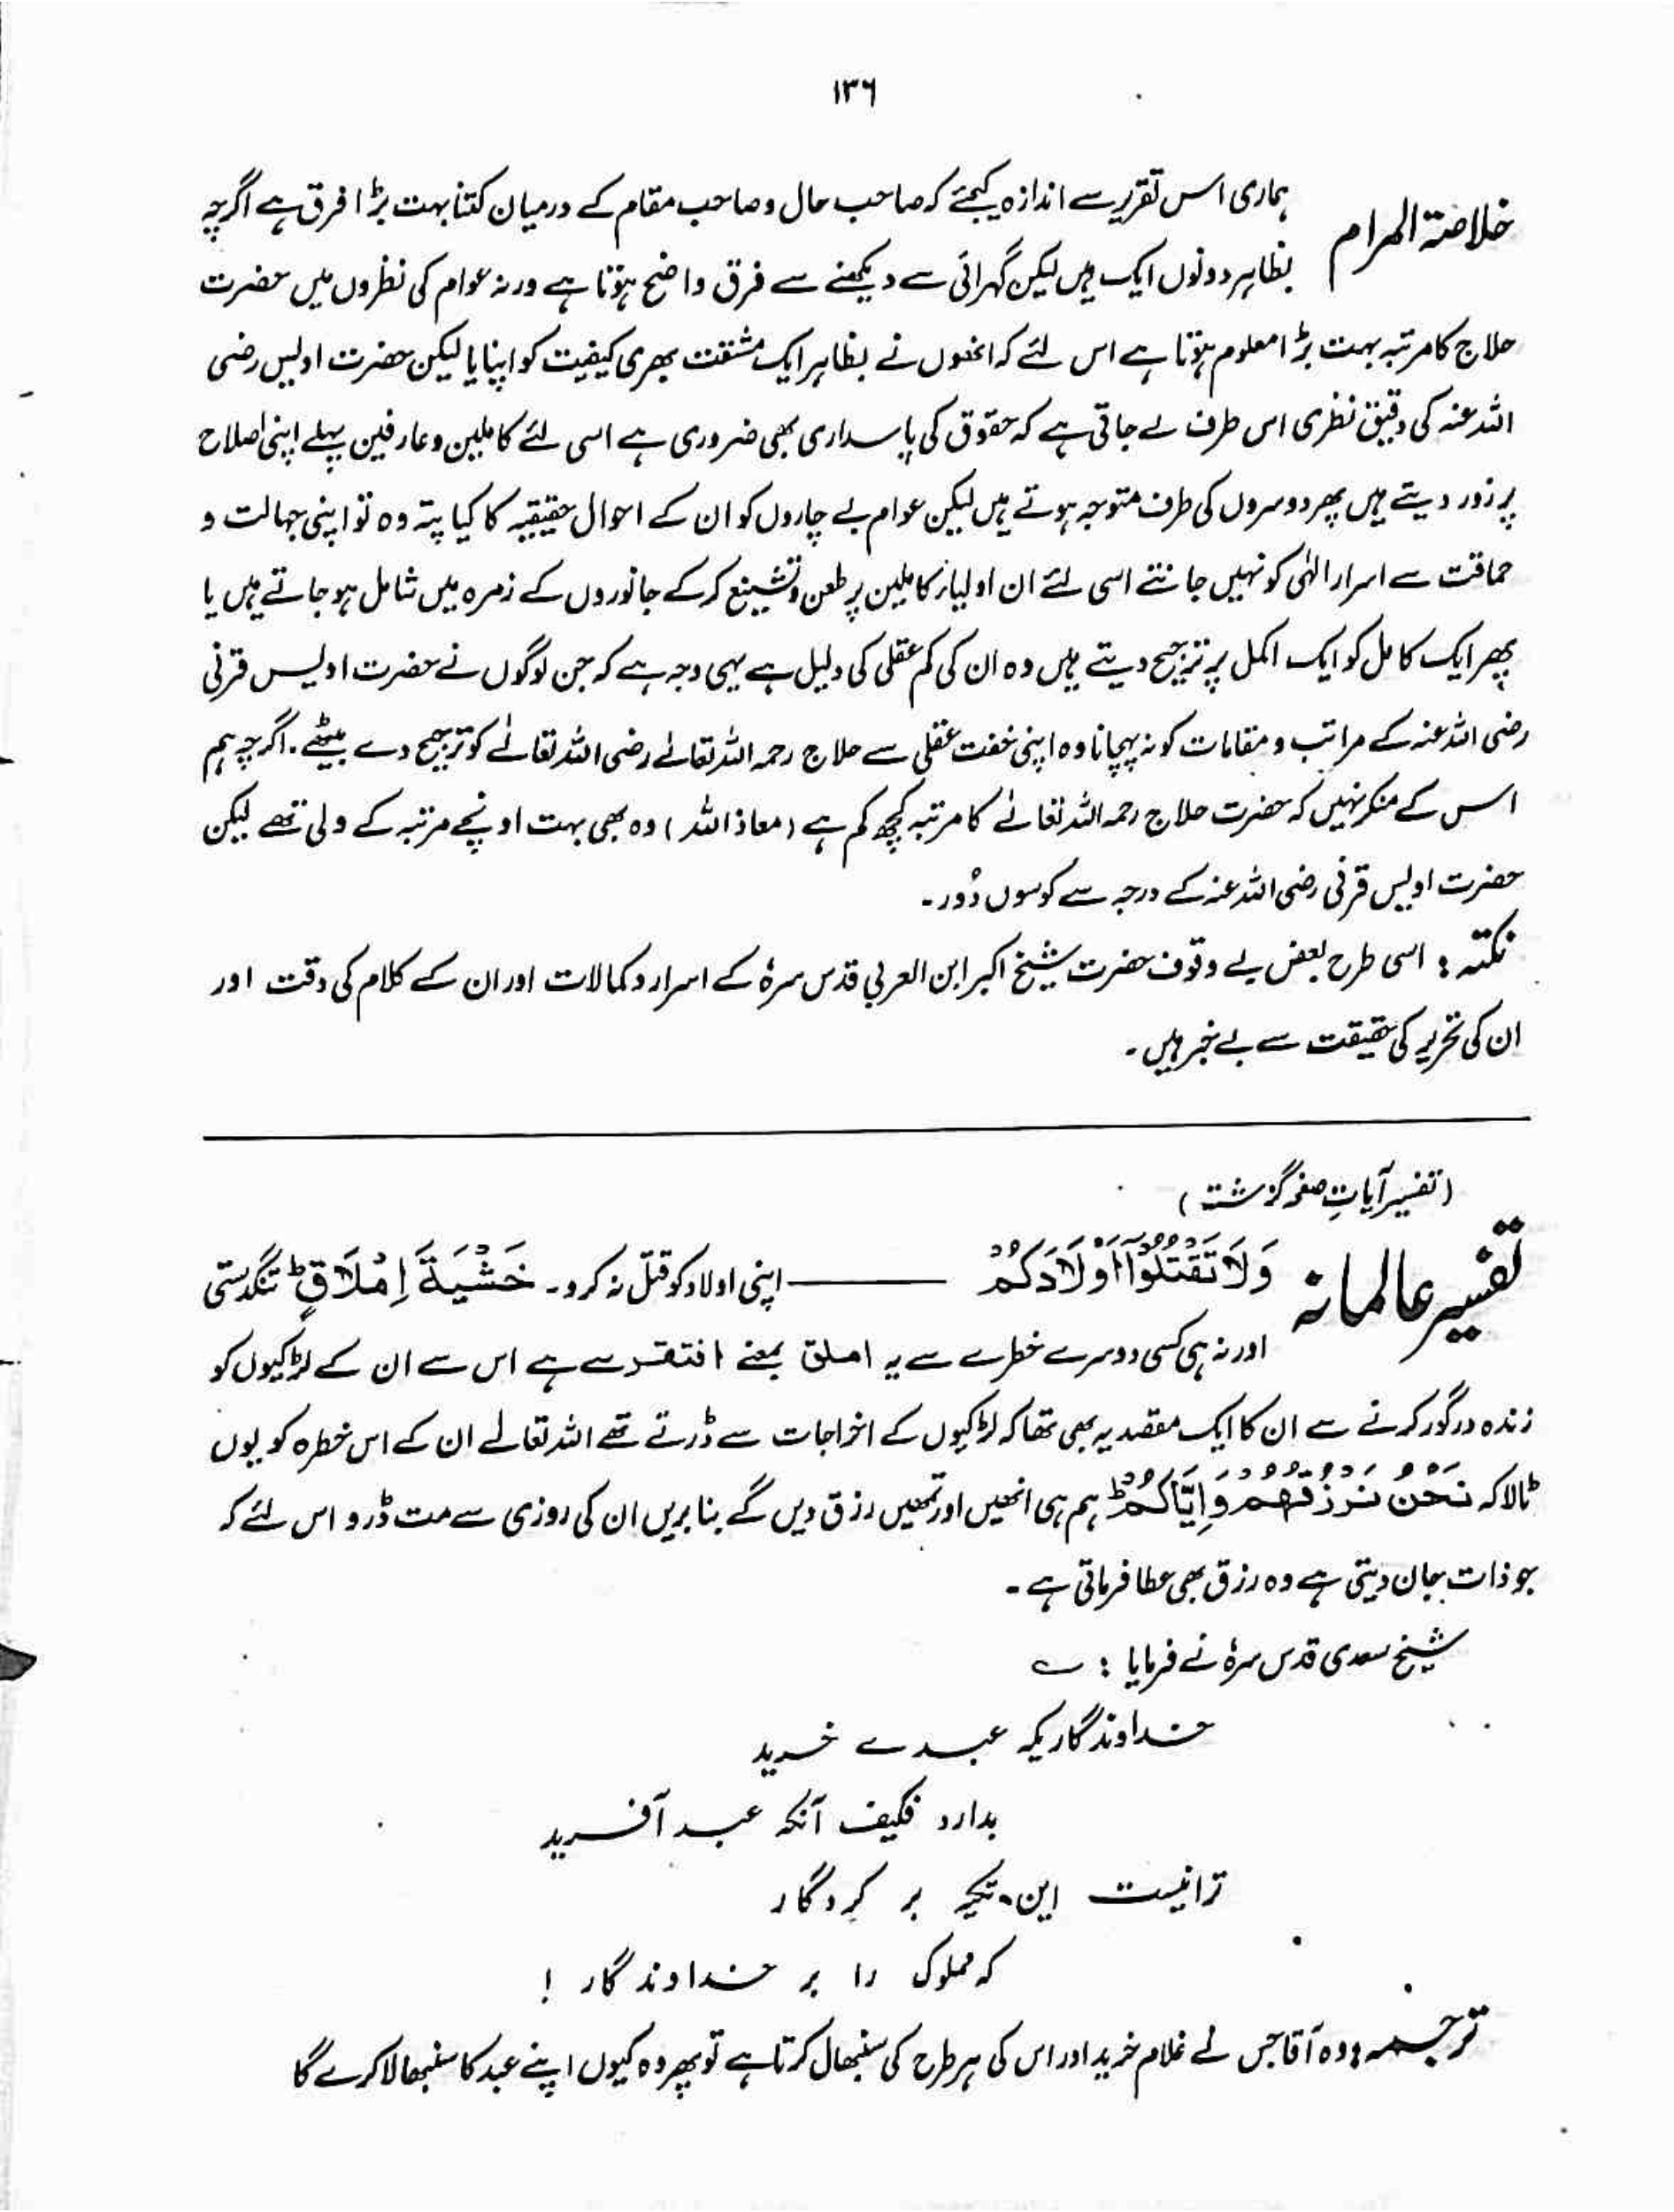 ۱۳۶
خلاصۃ المرام
ہماری اس تقریر سے اندازہ کیجئے کہ صاحب حال و صاحب مقام کے درمیان کتنا بہت بڑا فرق ہے اگرچہ
بظاہر دونوں ایک ہیں لیکن گہرائی سے دیکھنے سے فرق واضح ہوتا ہے ورنہ عوام کی نظروں میں حضرت
حلاج کا مرتبہ بہت بڑا معلوم ہوتا ہے اس لئے کہ انھوں نے بظاہر ایک مشقت بھری کیفیت کو اپنایا لیکن حضرت اویس رضی
اللہ عنہ کی دقیق نظری اس طرف لے جاتی ہے کہ حقوق کی پاسداری بھی ضروری ہے اسی لئے کاملین و عارفین پہلے اپنی اصلاح
پر زور دیتے ہیں پھر دوسروں کی طرف متوجہ ہوتے ہیں لیکن عوام بے چاروں کو ان کے احوال حقیقیہ کا کیا پتہ وہ تو اپنی جہالت و
حماقت سے اسرار الٰہی کو نہیں جانتے اسی لئے ان اولیاء کاملین پر طعن و تشنیع کرکے جانوروں کے زمرہ میں شامل ہو جاتے ہیں یا
پھر ایک کامل کو ایک اکمل پر ترجیح دیتے ہیں وہ ان کی کم عقلی کی دلیل ہے یہی وجہ ہے کہ جن لوگوں نے حضرت اویس قرنی
رضی اللہ عنہ کے مراتب و مقامات کو نہ پہچانا وہ اپنی خفت عقلی سے حلاج رحمہ اللہ تعالٰے رضی اللہ تعالٰے کو ترجیح دے بیٹھے۔ اگرچہ ہم
اس کے منکر نہیں کہ حضرت حلاج رحمہ اللہ تعالٰے کا مرتبہ کچھ کم ہے (معاذ اللہ) وہ بھی بہت اونچے مرتبہ کے ولی تھے لیکن
حضرت اویس قرنی رضی اللہ عنہ کے درجہ سے کوسوں دُور۔
نکتہ : اسی طرح بعض بے وقوف حضرت شیخ اکبر ابن العربی قدس سرہٗ کے اسرار و کمالات اور ان کے کلام کی دقت اور
ان کی تحریر کی حقیقت سے بے خبر ہیں۔
(تفسیر آیاتِ صفحہ گزشتہ)
تفسیر عالمانہ
وَلَا تَقْتُلُوْٓا اَوْلَادَكُمْ ــــــ اپنی اولاد کو قتل نہ کرو۔ خَشْيَةَ اِمْلَاقٍ ؕ تنگدستی
اور نہ ہی کسی دوسرے خطرے سے یہ املق بمعنے افتقر سے ہے اس سے ان کے لڑکیوں کو
زندہ درگور کرنے سے ان کا ایک مقصد یہ بھی تھا کہ لڑکیوں کے اخراجات سے ڈرتے تھے اللہ تعالے ان کے اس خطرہ کو یوں
ٹالا کہ نَحْنُ نَرْزُقُهُمْ وَاِيَّاكُمْ ؕ ہم ہی انھیں اور تمھیں رزق دیں گے بنا بریں ان کی روزی سے مت ڈرو اس لئے کہ
جو ذات جان دیتی ہے وہ رزق بھی عطا فرماتی ہے۔
شیخ سعدی قدس سرہٗ نے فرمایا : ؎
خداوندگاریکہ عبدے خرید
بدارد فکیف آنکہ عبد آفرید
ترا نیست این تکیہ بر کردگار
کہ مملوک را بر خداوندگار !
ترجمہ : وہ آقا جس نے غلام خرید اور اس کی ہر طرح کی سنبھال کرتا ہے تو پھر وہ کیوں اپنے عبد کا سنبھالا کرے گا